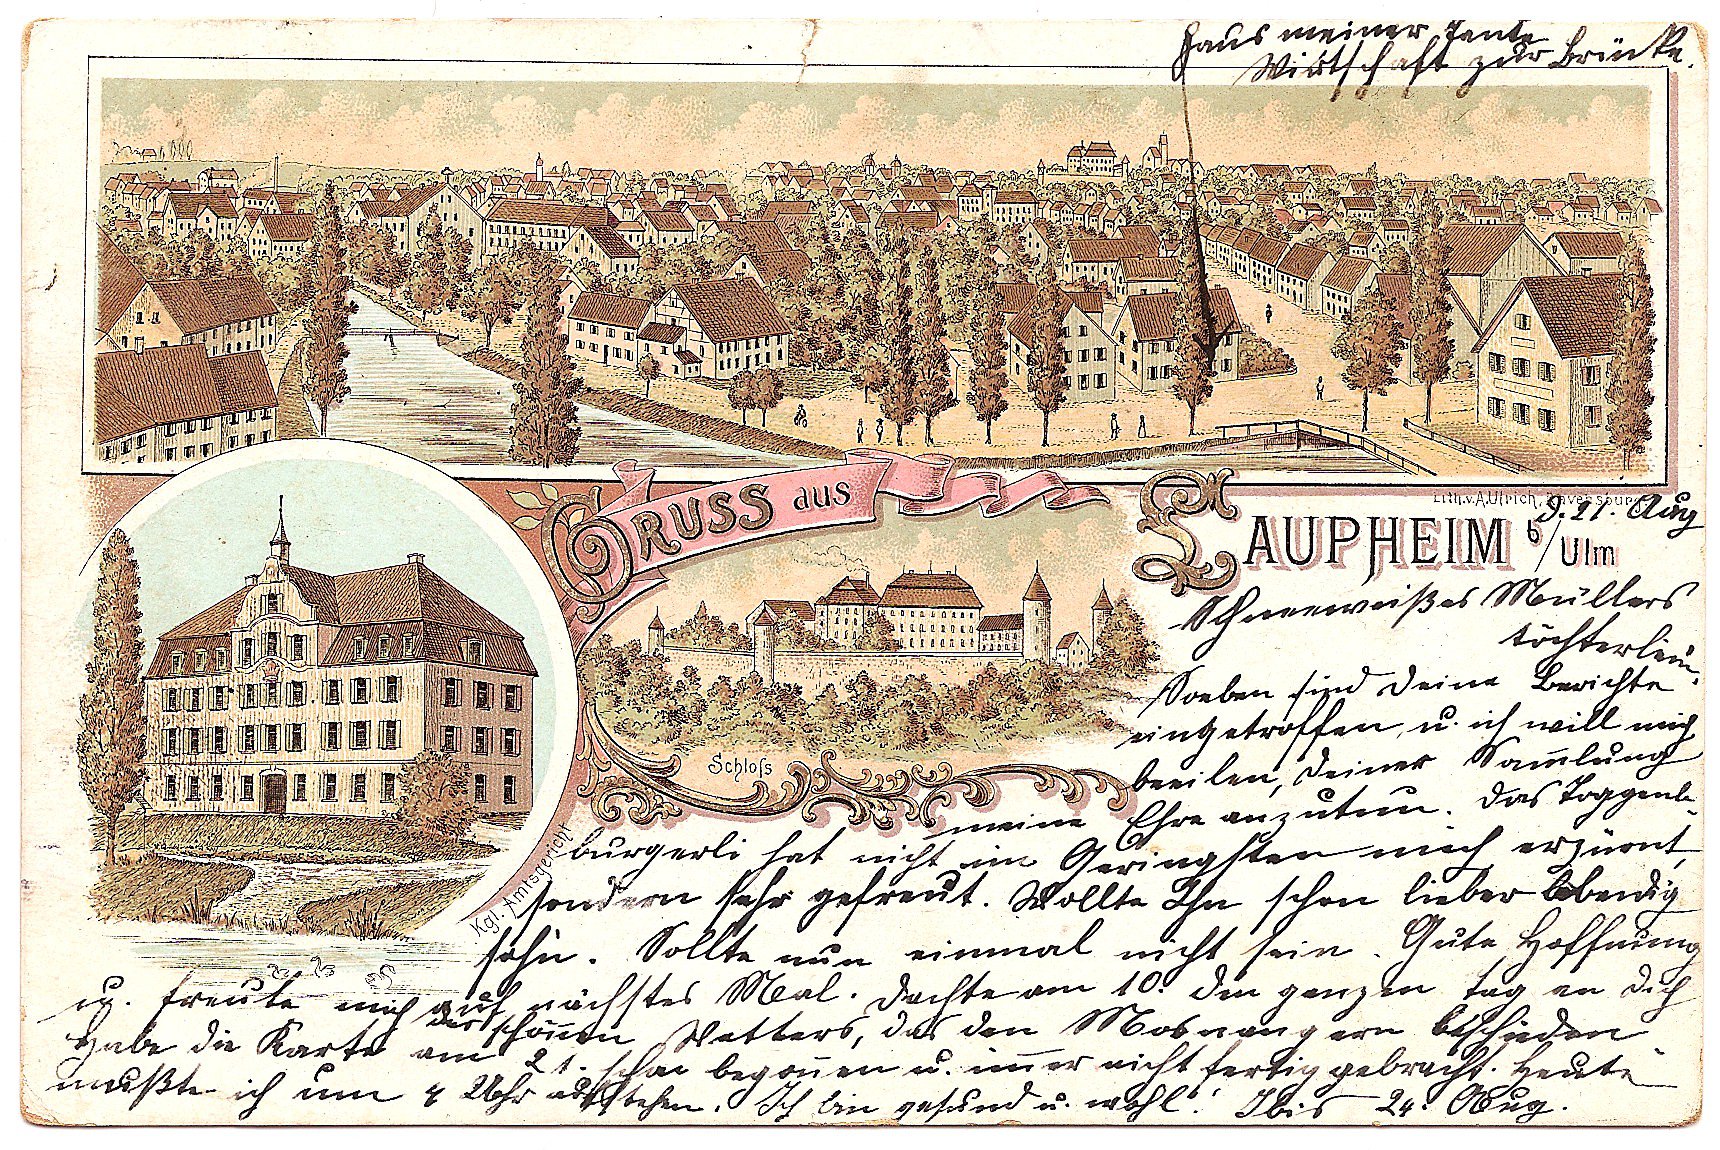 Haus meiner Tante
Wirtschaft zur Brücke.
Lith. v. A. Ulrich, Ravensburg
GRUSS aus
LAUPHEIM b/Ulm
d. 21. Aug
Schneeweißes Müllers
töchterlein.
Soeben sind Deine Berichte
eingetroffen, u. ich will mich
beeilen, Deiner Sammlung
meine Ehre anzutun. Das Toggen-
burgerli hat nicht im Geringsten mich erzürnt,
sondern sehr gefreut. Wollte Ihn schon lieber lebendig
sehn. Sollte nun einmal nicht sein. Gute Hoffnung
u. freute mich auf nächstes Mal. Dachte am 10. den ganzen Tag an Dich
des schönen Wetters, das den Mosnangern beschieden
Habe die Karte am 21. schon begonnen u. immer nicht fertig gebracht. Heute
mußte ich um 4 Uhr aufstehen. Ich bin gesund u. wohl! 24. Aug.
Schloß
Kgl. Amtsgericht